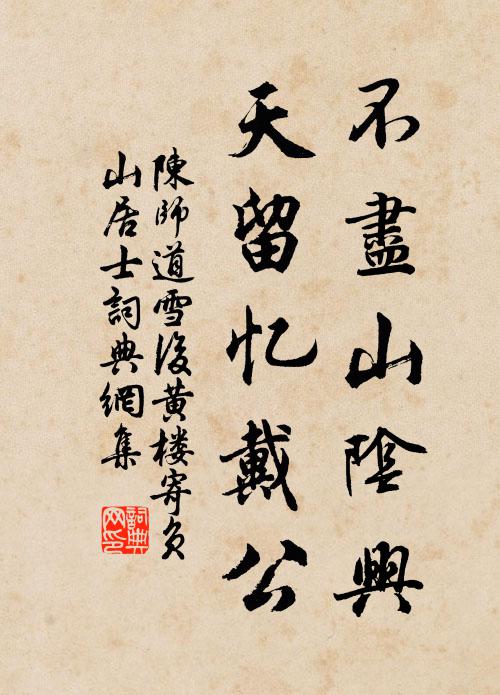 不盡山陰興
天留忆戴公
陳師道雪後黄楼寄负
山居士詞典網集
詞典网印